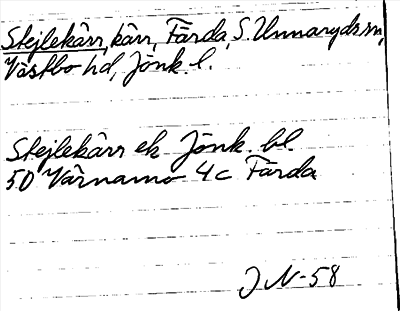 Stejlekärr, kärr, Färda, S. Unnaryds sn,
Västbo hd, Jönk. l.
Stejlekärr ek Jönk. bl.
5D Värnamo 4c Färda
JN-58